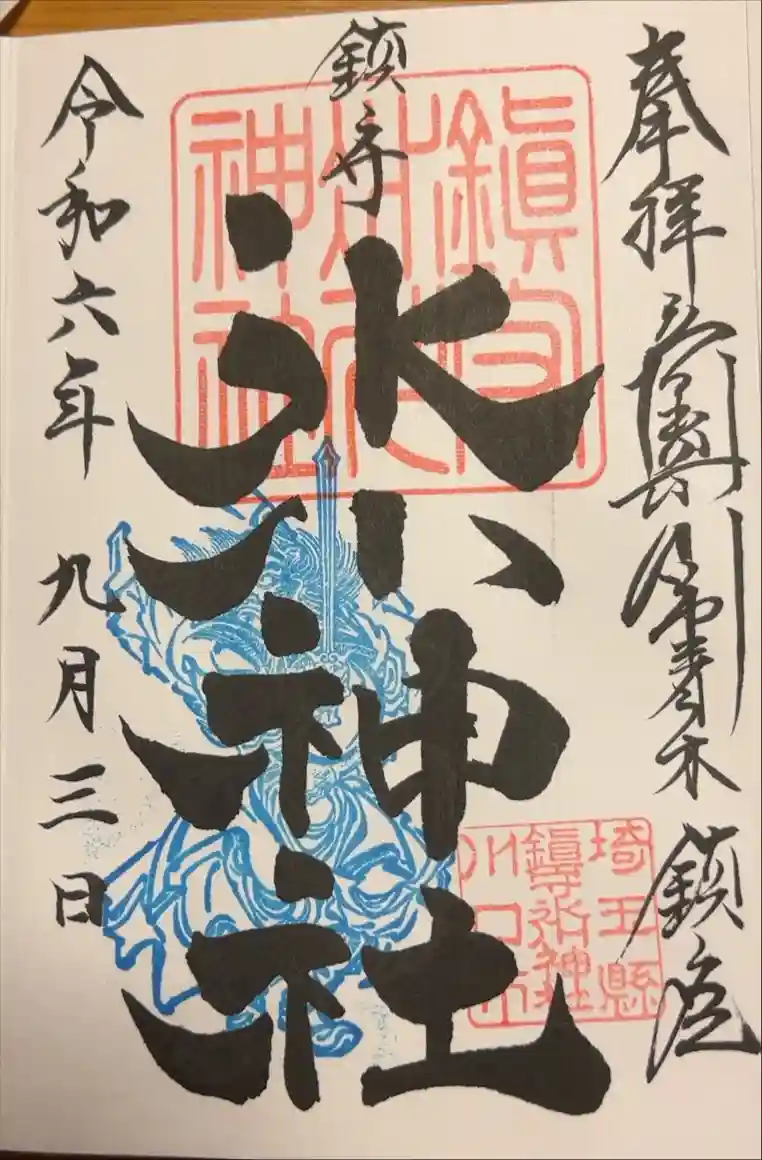 奉拝
青木
鎮座
鎮守
氷川神社
鎮守
氷川
神社
埼玉縣
鎮守氷川神社
川口市
令和六年 九月三日